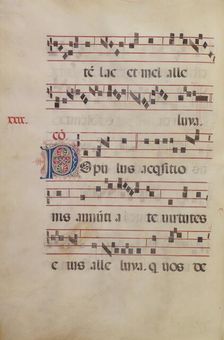 té lac et mel alle
xxx. luya.
cō
Populus acq̄sitio
nis annūti a te uirtutes
e ius alle luya. q uos de